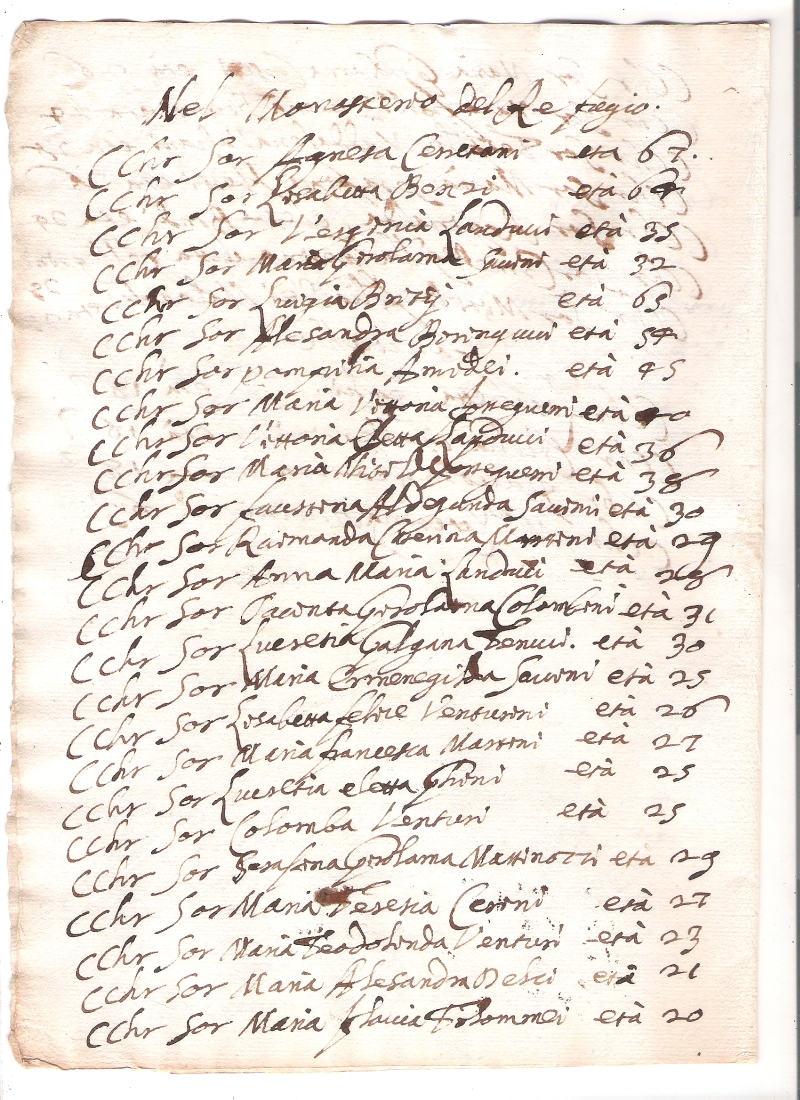 Nel Monasterio del Refugio.
CChr Sor Agnesa Cerretani età 67.
CChr Sor Lisabetta Bonzi età 64
CChr Sor Verginia Landucci età 35
CChr Sor Maria Girolama Savini età 32
CChr Sor Luigia età 65
CChr Sor Alesandra Beringucci età 54
CChr Sor pompilia Amidei. età 45
CChr Sor Maria Vittoria età 40
CChr Sor Vittoria Eletta Landucci età 36
CChr Sor Maria età 38
CChr Sor faustina Aldegunda Savini età 30
CChr Sor Raimonda Caterina Martini età 29
CChr Sor Anna Maria Landucci età 28
CChr Sor Girolama Colombini età 31
CChr Sor Lucretia Galgana Benucci. età 30
CChr Sor Maria Ermenegilda Savini età 25
CChr Sor Lisabetta felice Venturini età 26
CChr Sor Maria francesca Martini età 27
CChr Sor Lucretia eletta Ghini età 25
CChr Sor Colomba Venturi età 25
CChr Sor Serafina Girolama Mattinozzi età 29
CChr Sor Maria Teresia Cerini età 27
CChr Sor Maria Teodolinda Venturi età 23
CChr Sor Maria Alesandra Delci età 21
CChr Sor Maria flavia Tolommei età 20